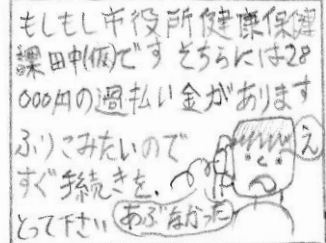 もしもし市役所健康保険
課田中(仮)です そちらには28
000円の過払い金があります
ふりこみたいので
すぐ手続きを、
とって下さい
え
あぶなかった